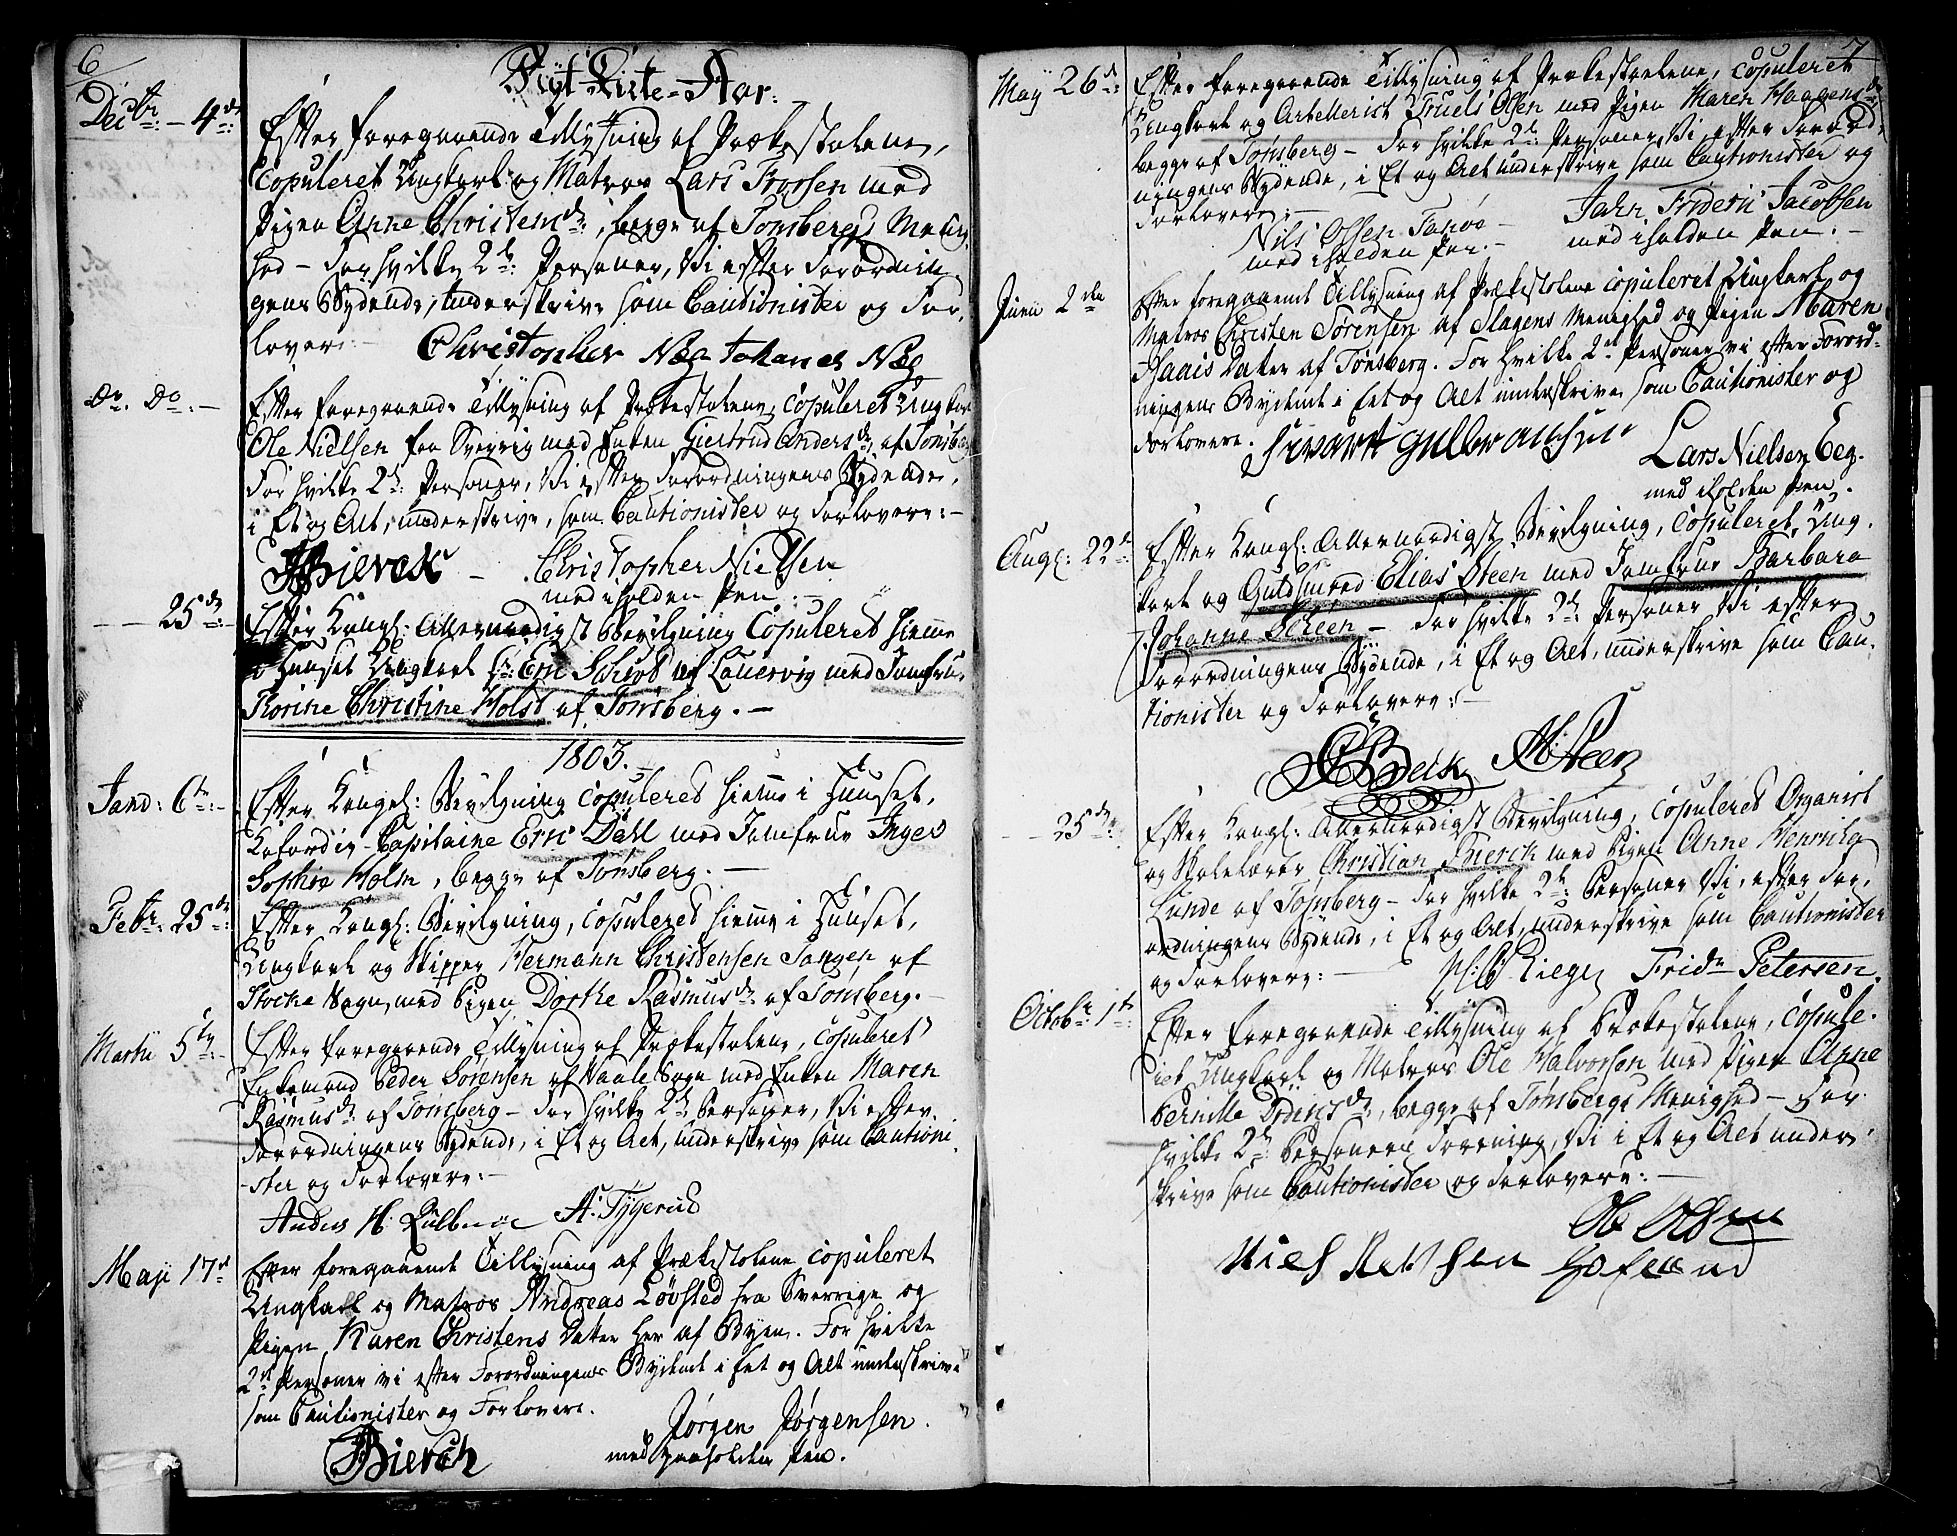 6
Nÿt Kirke-Aar:
Decbr: - 4de:
Efter foregaaende Tillysning af Prækestolene,
Copuleret Ungkarl og Matros Lars Frorsen med
Pigen Anne Christensdr:, begge af Tønsbergs Menig-
hed – For hvilke 2de: Personer, Vi efter Forordnin-
gens Bydende, underskrive som Cautionister og For-
lover:
Christopher Næs Johanes Næs
Do. Do. -
Efter foregaaende Tillysning af Prækestolene, Copuleret Ungkarl
Ole Nielsen fra Sverrig med Enken Giertrud Andersdr. af Tønsberg
For hvilke 2de: Personer, Vi efter Forordningens Bydende,
i Et og Alt, underskrive, som Cautionister og Forlovere: -
Bierck - Christopher Nielsen
med iholden Pen: -
- - 25de: -
Efter Kongl: Allernaadigst Bevilgning Copuleret hiemme
i Huuset Ungkarl Sr: Eric Schiøt af Laurvig med Jomfrue
Thorine Christine Holst af Tønsberg. -
1803.
Janu: 6te: -
Efter Kongel: Bevilgning Copulered hiemme i Huuset,
Kofardie-Capitaine Eric Dahl med Jomfrue Inger
Sophie Holm, begge af Tønsberg. -
Febr: 25de:
Efter Kongl: Bevilgning, Copulered hiemme i Huuset,
Ungkarl og Skipper Hermann Christensen Tangen af
Stocke Sogn, med Pigen Dorthe Rasmusdr. af Tønsberg. -
Martii 5te: -
Efter foregaaende Tillysning af Prækestolene, Copuleret
Enkemand Peder Sørensen af Vaale Sogn med Enken Maren
Rasmusdr. af Tønsberg - For hvilke 2de Personer, Vi efter
Forordningens Bydende, i Et og Alt, underskrive som Cautioni-
ster og Forlovere: -
Anders H: A: Tygerud
Maji 17de
Efter foregaaendt Tillysning af Prækestolene copuleret
Ungkarl og Matros Andreas Løvsted fra Sverrige og
Pigen Karen Christens Datter her af Byen. For hvilke
2de Personer vi efter Forordningens Bydendt i Eet og Alt underskrive
som Cautionister og Forlovere.
Bierch Jørgen Jørgensen.
med paaholden Pen.
7
May 26de:
Efter foregaaende Tillysning af Prækestolene, Copuleret
Ungkarl og Artellerist Truels Olsen med Pigen Maren Haagensdr.
begge af Tønsberg - For hvilke 2de: Personer, Vi efter Forord-
ningens Bydende, i Et og Alt underskrive som Cautionister og
Forlovere: -
Nils Olsen Tarøe - Jahn Friderii Jacobsen
med iholden Pen. - med iholden Pen: -
Junii 2den
Efter foregaaendt Tillysning af Prækestolene copuleret Ungkarl og
Matros Christen Sørensen af Slagens Menighed og Pigen Maren
Haais Datter af Tønsberg. For hvilke 2de Personer vi efter Forord-
ningens Bydendt i Eet og Alt underskrive som Cautionister og
Forlovere. Sivart gulbrandsen
Lars Nielsen Eeg.
med iholden Pen.
Aug: 22de:
Efter Kongl: Allernaadigst Bevilgning, Copuleret, Ung-
karl og Guldsmed Elias Steen med Jomfrue Barbara
Johanne Steen - For hvilke 2de: Personer Vi efter
Forordningens Bydende, i Et og Alt, underskrive som Cau-
tionister og Forlovere: -
Beck M: Steen
- - 25de:
Efter Kongl: Allernaadigst Bevilgning, Copulered Organist
og Skolelærer Christian Bierch med Pigen Anne Henricha
Lunde af Tønsberg - For hvilke 2de: Personer Vi, efter For-
ordningens Bydende, i Et og Alt, underskrive som Cautionister
og Forlovere: - Fridr Petersen.
Octobr: 1te:
Efter foregaaende Tillysning af Prækestolene, Copule-
ret Ungkarl og Matros Ole Halvorsen med Pigen Anne
Pernille, begge af Tønsbergs Menighed - For
hvilke 2de: Personers Forening, Vi i Et og Alt under-
skrive som Cautionister og Forlovere: -
Ole Olsen
Niels